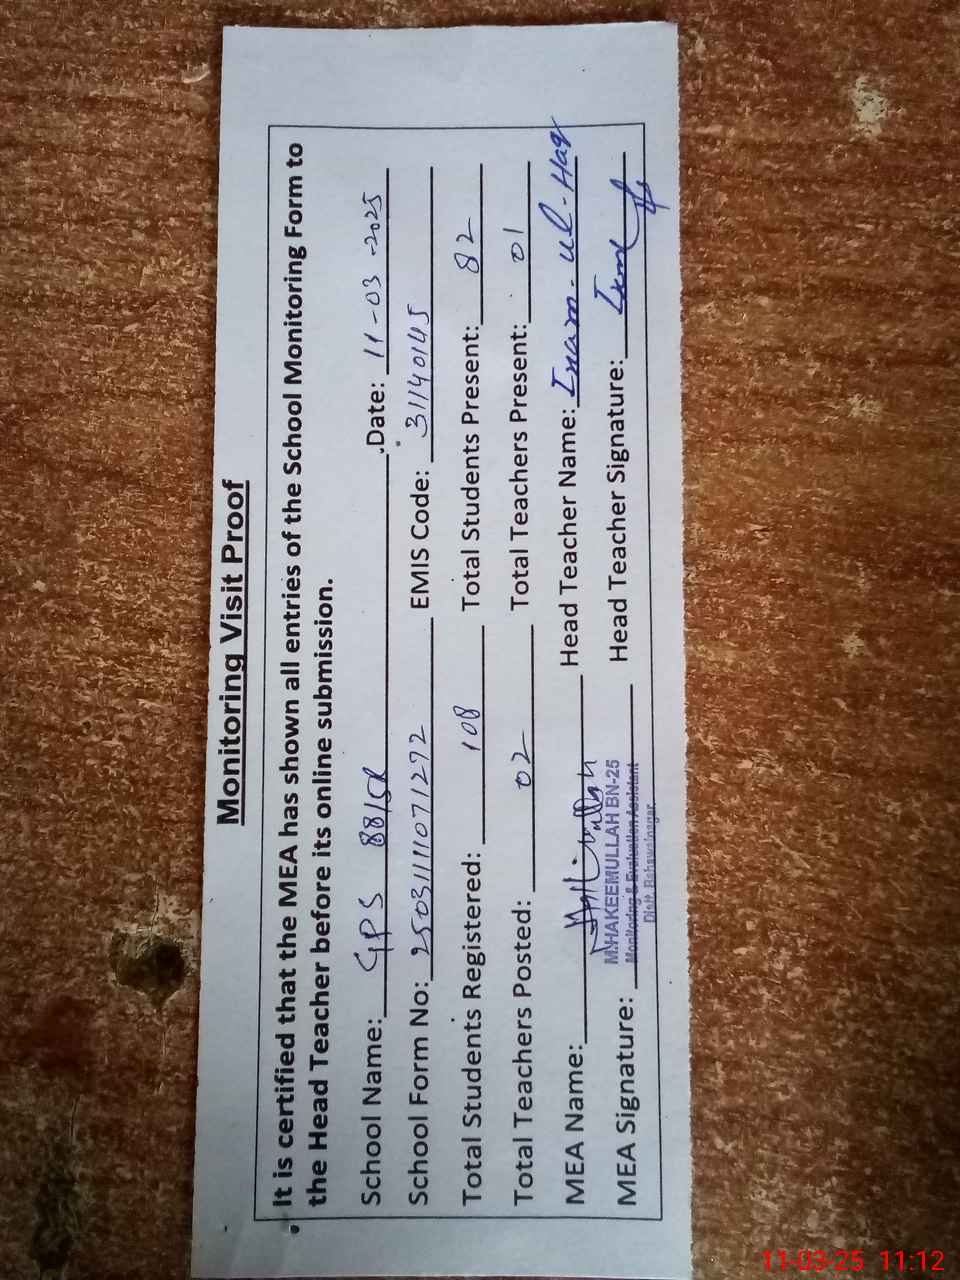 Monitoring Visit Proof
It is certified that the MEA has shown all entries of the School Monitoring Form to
the Head Teacher before its online submission.
School Name: GPS 88/5R Date: 11-03-2025
School Form No: 250311111071272 EMIS Code: 31140145
Total Students Registered: 108 Total Students Present: 82
Total Teachers Posted: 02 Total Teachers Present: 01
MEA Name: Head Teacher Name: Inam-ul-Haq
M.HAKEEMULLAH BN-25
Monitoring & Evaluation Assistant
Distt. Bahawalnagar
MEA Signature: Head Teacher Signature:
11-03-25 11:12